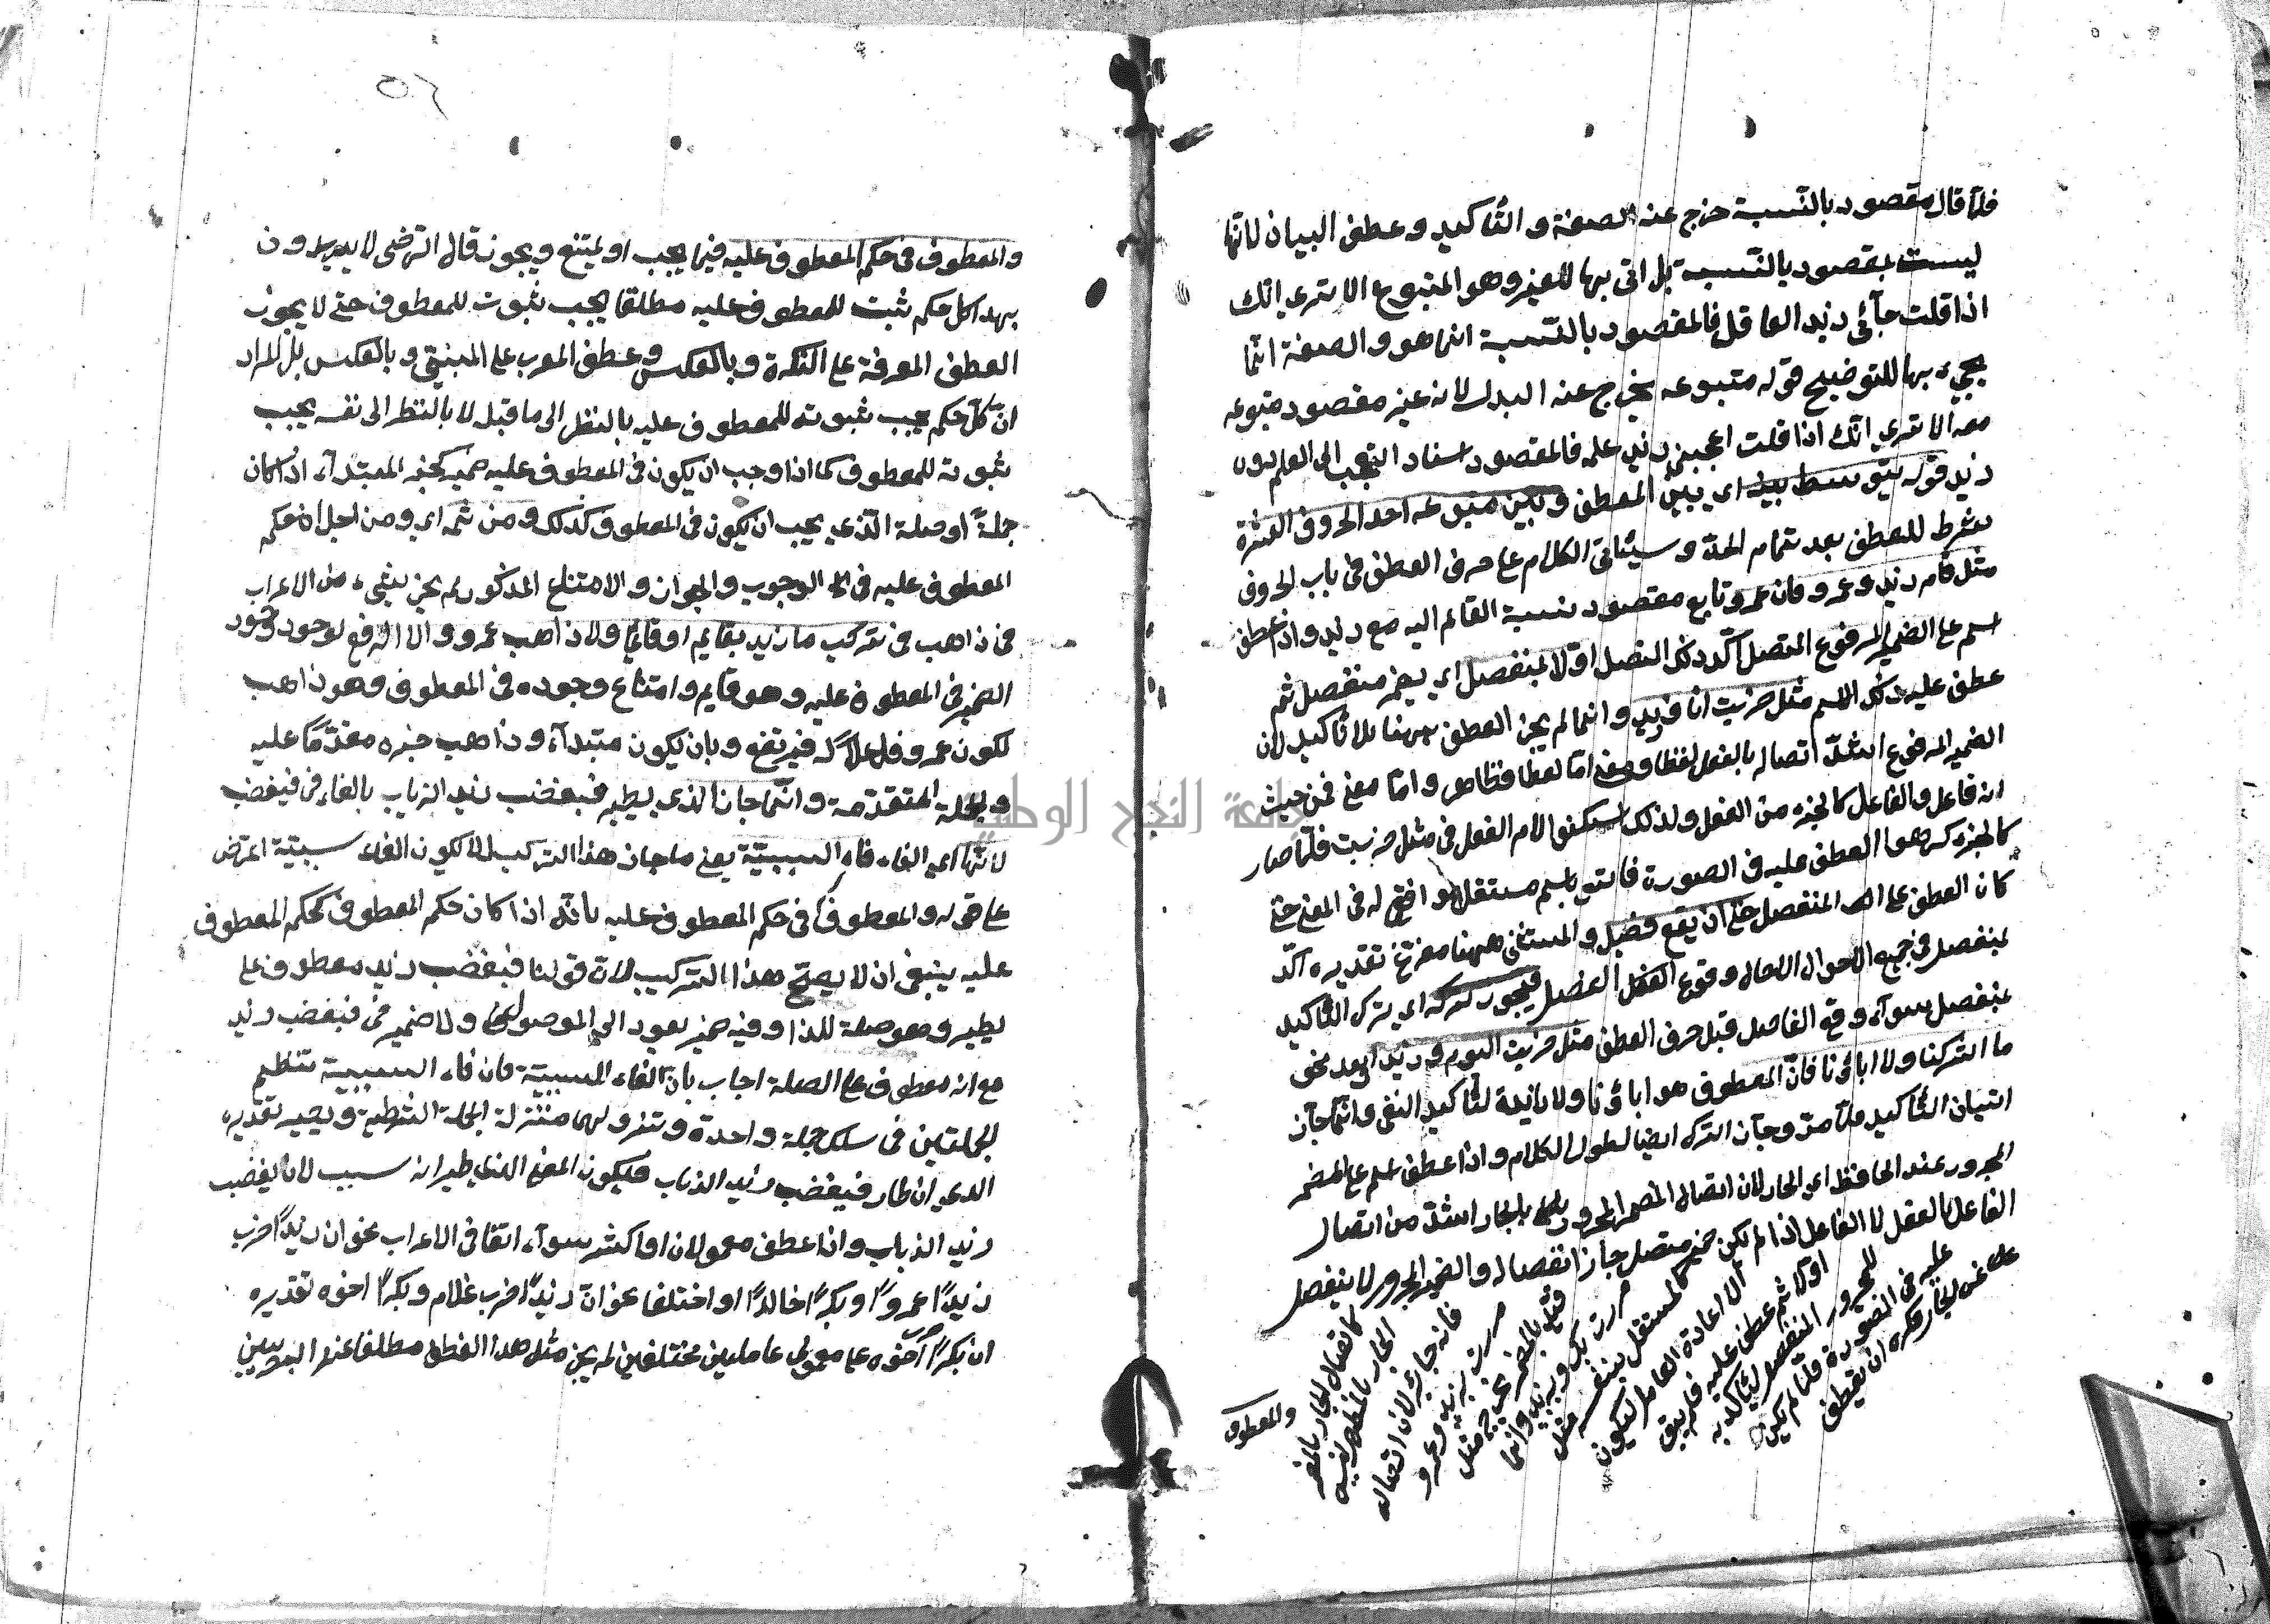 فلما قال مقصود بالنسبة خرج عنه الصفة والتأكيد وعطف البيان لانها
ليست بمقصود بالنسبة بل اتى بها للغير وهو المتبوع الا ترى انك
اذا قلت جآئني زيد العاقل فالمقصود بالنسبة انما هو والصفة انما
يجيء بها للتوضيح قوله متبوعه يخرج عنه البدل لانه غير مقصود متبوعه
معه الا ترى انك اذا قلت اعجبني زيد علمه فالمقصود اسناد التعجب الى العلم دون
زيد قوله يتوسط بينه اي بين المعطف وبين متبوعه احد الحروف العشرة
شرط للعطف بعد تمام الحد وسيأتي الكلام على حرف العطف في باب الحروف
مثل قام زيد وعمرو فان عمرو تابع مقصود بنسبة القائم اليه مع زيد واذا عطف
اسم على الضمير المرفوع المتصل اكد ذلك المتصل اولا بمنفصل اي بضمير منفصل ثم
عطف عليه ذلك الاسم مثل ضربت انا وزيد وانما لم يجز العطف ههنا بلا تأكيد لان
الضمير المرفوع اشد اتصاله بالفعل لفظا ومعنى اما لفظا فظاهر واما معنى فمن حيث
انه فاعل والفاعل كالجزء من الفعل ولذلك اسكنوا لام الفعل في مثل ضربت فلما صار
كالجزء كرهوا العطف عليه في الصورة فاتي باسم مستقل موافق له في المعنى حتى
كان العطف على المنفصل حتى ان يقع فصل والمستثنى ههنا مفرغ تقديره اكد
بمنفصل في جميع الاحوال الا حال وقوع الفصل فيجوز تركه اي ترك التأكيد
بمنفصل سواء وقع الفاصل قبل حرف العطف مثل ضربت اليوم وزيد او بعد نحو
ما اشركنا ولا اباؤنا فان المعطوف هو اباؤنا ولا زايدة لتأكيد النفي وانما جاز
اتيان التأكيد لما مر وجاز الترك ايضا لطول الكلام واذا عطف اسم على المضمر
المجرور عند الخافظ اي الجار لان اتصال المضمر المجرور بالجار اشد من اتصال
الفاعل بالفعل لا الفاعل اذا لم يكن ضمير متصل جاز انفصاله والضمير المجرور لا ينفصل
عن الجار فكره ان يعطف
عليه في الصورة فلما لم يكن
للمجرور المنفصل ليتأكد به
اولا ثم عطف عليه فلم يبق
الا اعادة العامل ليكون
كالمستقل بنفسه مثل
مررت بك وبزيد وانما
قيل بالمضمر يخرج مثل
مررت بزيد وعمرو
فانه جايز لان اتصال
الجار بالمظهر ليس
كاتصال الجار بالمضمر
والمعطوف
والمعطوف في حكم المعطوف عليه فيما يجب او يمتنع ويجوز قال الرضي لا يريدون
بهذا كل حكم ثبت للمعطوف عليه مطلقا يجب ثبوت للمعطوف حتى لا يجوز
العطف المعرفة على النكرة وبالعكس وعطف المعرب على المبني وبالعكس بل المراد
ان كل حكم يجب ثبوته للمعطوف عليه بالنظر الى ما قبله لا بالنظر الى نفسه يجب
ثبوته للمعطوف كما اذا وجب ان يكون في المعطوف عليه ضمير كخبر المبتدآء اذا كان
جملةً او صلة الذي يجب ان يكون في المعطوف كذلك ومن ثمه اي ومن اجل ان حكم
المعطوف عليه في الوجوب والجواز والامتناع المذكور لم يجز شيء من الاعراب
في ذاهب في تركيب ما زيد بقايم او قائما ولا ذاهب عمرو والا الرفع لوجود وجود
الضمير في المعطوف عليه وهو قايم وامتناع وجوده في المعطوف وهو ذاهب
لكون عمرو فاعلاً له فيرتفع وبان يكون مبتدآء وذاهب خبره مقدّمًا عليه
والجملة المتقدّمة وانما جاز الذي يطير فيغضب زيد الذباب بالفاء في فيغضب
لانها اي الفاء فاء السببيّة يعني ما جاز هذا التركيب الا لكون الفاء سببيّة اعترض
على قوله والمعطوف في حكم المعطوف عليه بأنه اذا كان حكم المعطوف كحكم المعطوف
عليه ينبغي ان لا يصح هذا التركيب لان قولنا فيغضب زيد معطوف على
يطير وهو صلة للذا وفيه ضمير يعود الى الموصول ولا ضمير في فيغضب زيد
مع انه معطوف على الصلة اجاب بان الفاء السببيّة فان فاء السببيّة تنظيم
الجملتين في سلك جملة واحدة وتنزولهما منزلة الجملة الشرطية ويصير تقديره
الذي ان طار فيغضب زيد الذباب فيكون المعنى الذي طيرانه سبب لان يغضب
زيد الذباب واذا عطف معمولان او اكثر سوآء اتفقا في الاعراب نحو ان زيدًا ضرب
زيدًا عمروًا وبكرًا خالدًا او اختلفا نحو انّ زيدًا ضرب غلام وبكرًا اخوه تقديره
ان بكرًا اخوه على معمولي عاملين مختلفين لم يجز مثل هذا العطف مطلقا عند البصريين
جامعة النجاح الوطنية